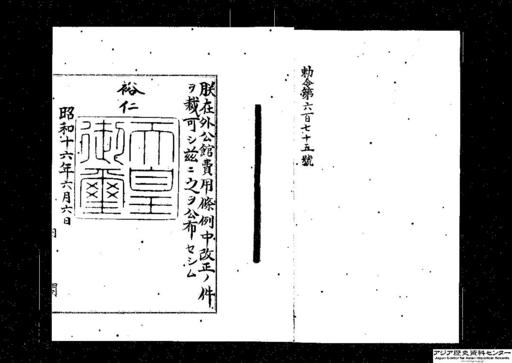 勅令第六百七十五號
朕在外公館費用條例中改正ノ件
ヲ裁可シ茲ニ之ヲ公布セシム
裕仁
天皇御璽
昭和十六年六月六日
内閣
アジア歴史資料センター
Japan Center for Asian Historical Records